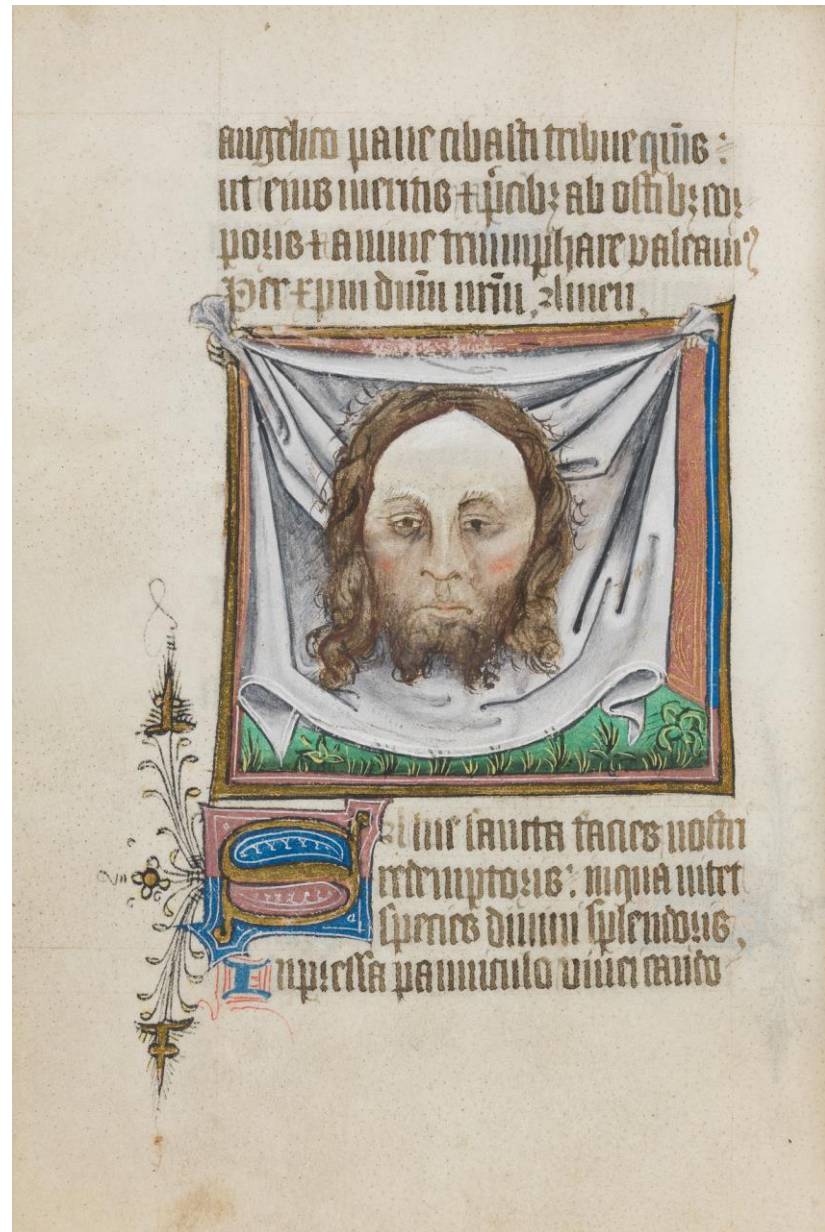 angelico pane cibasti tribue qm̄s :
ut eius meritis ⁊ p̄cibꝫ ab ostibꝫ cor
poris ⁊ anime triumphare valeamꝰ
Per xpm dnm̄ nrm̄ . Amen .
Salue sancta facies nostri
redemptoris : in qua nitet
species diuini splendoris .
Inpressa panniculo niuei cando